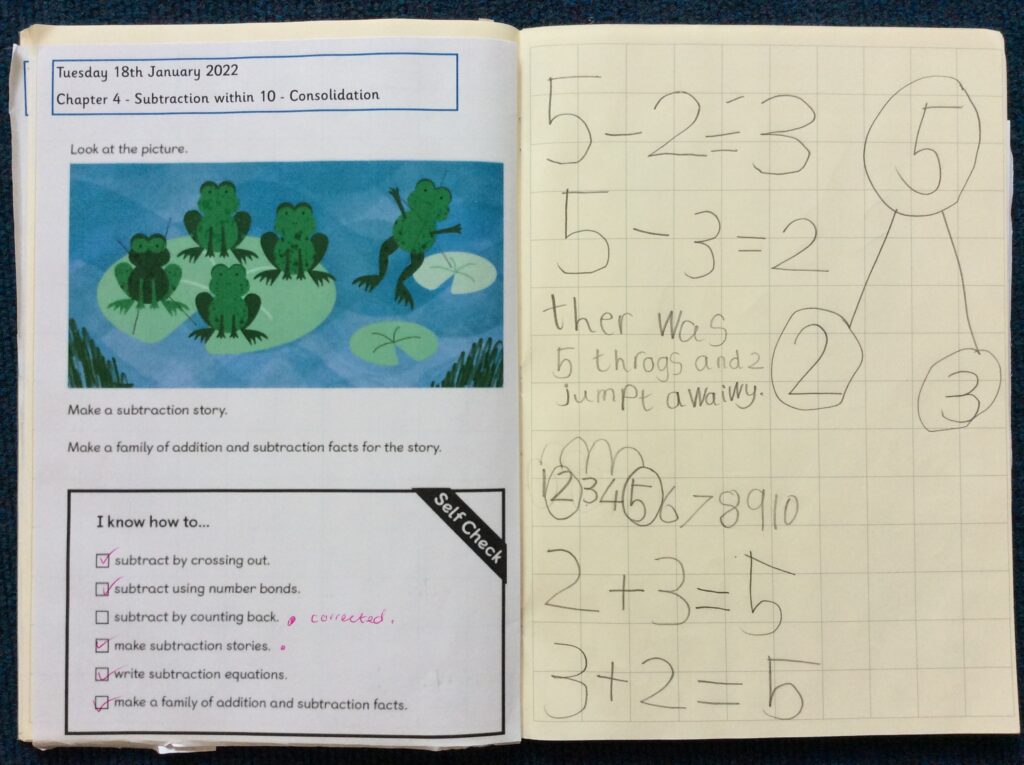 Tuesday 18th January 2022
Chapter 4 - Subtraction within 10 - Consolidation
Look at the picture.
Make a subtraction story.
Make a family of addition and subtraction facts for the story.
Self Check
I know how to...
subtract by crossing out.
subtract using number bonds.
subtract by counting back. corrected.
make subtraction stories.
write subtraction equations.
make a family of addition and subtraction facts.
5 - 2 = 3
5 - 3 = 2
5
2
3
ther was
5 throgs and 2
jumpt awaiwy.
1 2 3 4 5 6 7 8 9 10
2 + 3 = 5
3 + 2 = 5